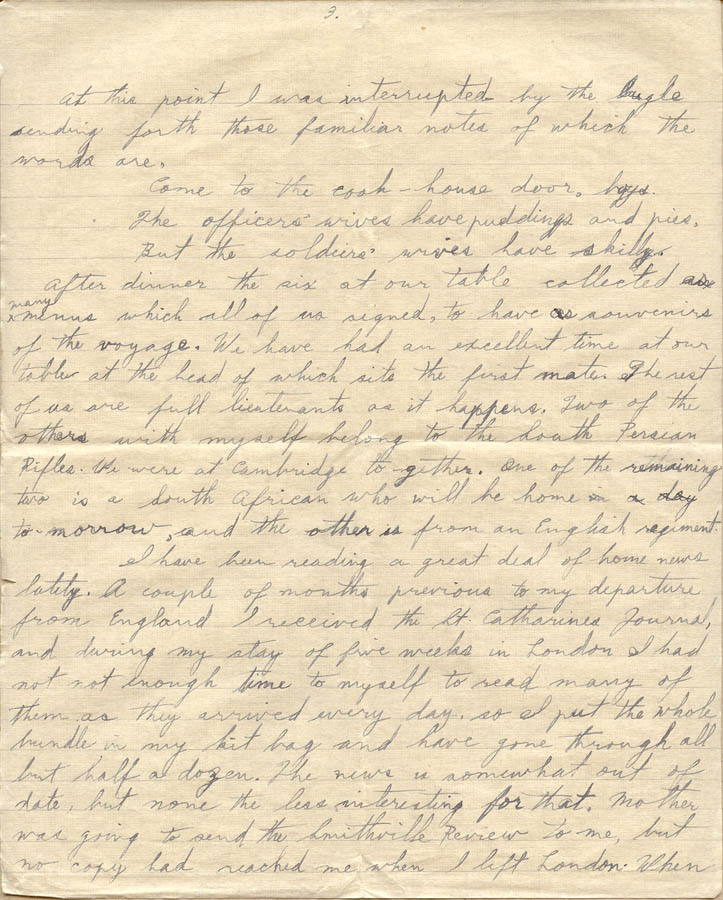 3.
At this point I was interrupted by the bugle
sending forth those familiar notes of which the
words are.
Come to the cook-house door, boys.
The officers' wives have puddings and pies,
But the soldiers' wives have skilly.
After dinner the six at our table collected
many
menus which all of us signed, to have as souvenirs
of the voyage. We have had an excellent time at our
table at the head of which sits the first mate. The rest
of us are full lieutenants as it happens. Two of the
others with myself belong to the South Persian
Rifles. We were at Cambridge to-gether. One of the remaining
two is a South African who will be home in a day
to-morrow, and the other is from an English regiment.
I have been reading a great deal of home news
lately. A couple of months previous to my departure
from England I received the St. Catharines Journal,
and during my stay of five weeks in London I had
not not enough time to myself to read many of
them as they arrived every day. so I put the whole
bundle in my kit bag and have gone through all
but half a dozen. The news is somewhat out of
date, but none the less interesting for that. Mother
was going to send the Smithville Review to me, but
no copy had reached me when I left London. When